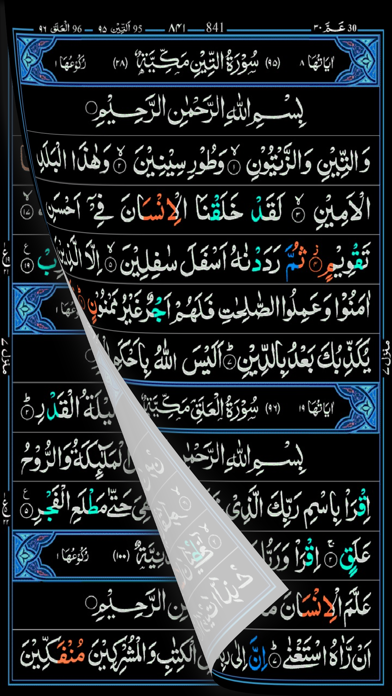 30 عَـمَّ ٣٠ — 841 — ٨٤١ — 95 اَلتِّيْن ٩٥ — 96 اَلْعَلَق ٩٦
اٰيَاتُهَا ٨ (٩٥) سُوْرَةُ التِّيْنِ مَكِّيَّةٌ (٢٨) رُكُوْعُهَا ١
بِسْمِ اللّٰهِ الرَّحْمٰنِ الرَّحِيْمِ
وَالتِّيْنِ وَالزَّيْتُوْنِ ۙ۱ وَطُوْرِ سِيْنِيْنَ ۙ۲ وَهٰذَا الْبَلَدِ
الْاَمِيْنِ ۙ۳ لَقَدْ خَلَقْنَا الْاِنْسَانَ فِيْٓ اَحْسَنِ
تَقْوِيْمٍ ۫۴ ثُمَّ رَدَدْنٰهُ اَسْفَلَ سٰفِلِيْنَ ۙ۵ اِلَّا الَّذِيْنَ
اٰمَنُوْا وَعَمِلُوا الصّٰلِحٰتِ فَلَهُمْ اَجْرٌ غَيْرُ مَمْنُوْنٍ
يُكَذِّبُكَ بَعْدُ بِالدِّيْنِ ۷ اَلَيْسَ اللّٰهُ بِاَحْكَمِ
اٰيَاتُهَا ١٩ (٩٦) سُوْرَةُ الْعَلَقِ مَكِّيَّةٌ لَيْلَةُ الْقَدْرِ
بِسْمِ اللّٰهِ الرَّحْمٰنِ الْمَلٰٓئِكَةُ وَالرُّوْحُ
اِقْرَاْ بِاسْمِ رَبِّكَ الَّذِيْ حَتّٰى مَطْلَعِ الْفَجْرِ ۵
عَلَقٍ ۲ اِقْرَاْ وَرَبُّكَ (١٠٠) رُكُوْعُهَا ١
عَلَّمَ الْاِنْسَانَ الرَّحْمٰنِ الرَّحِيْمِ
اَنْ رَّاٰهُ اسْتَغْنٰى ۷ اِنَّ اِلٰى رَبِّكَ الْكِتٰبِ وَالْمُشْرِكِيْنَ مُنْفَكِّيْنَ